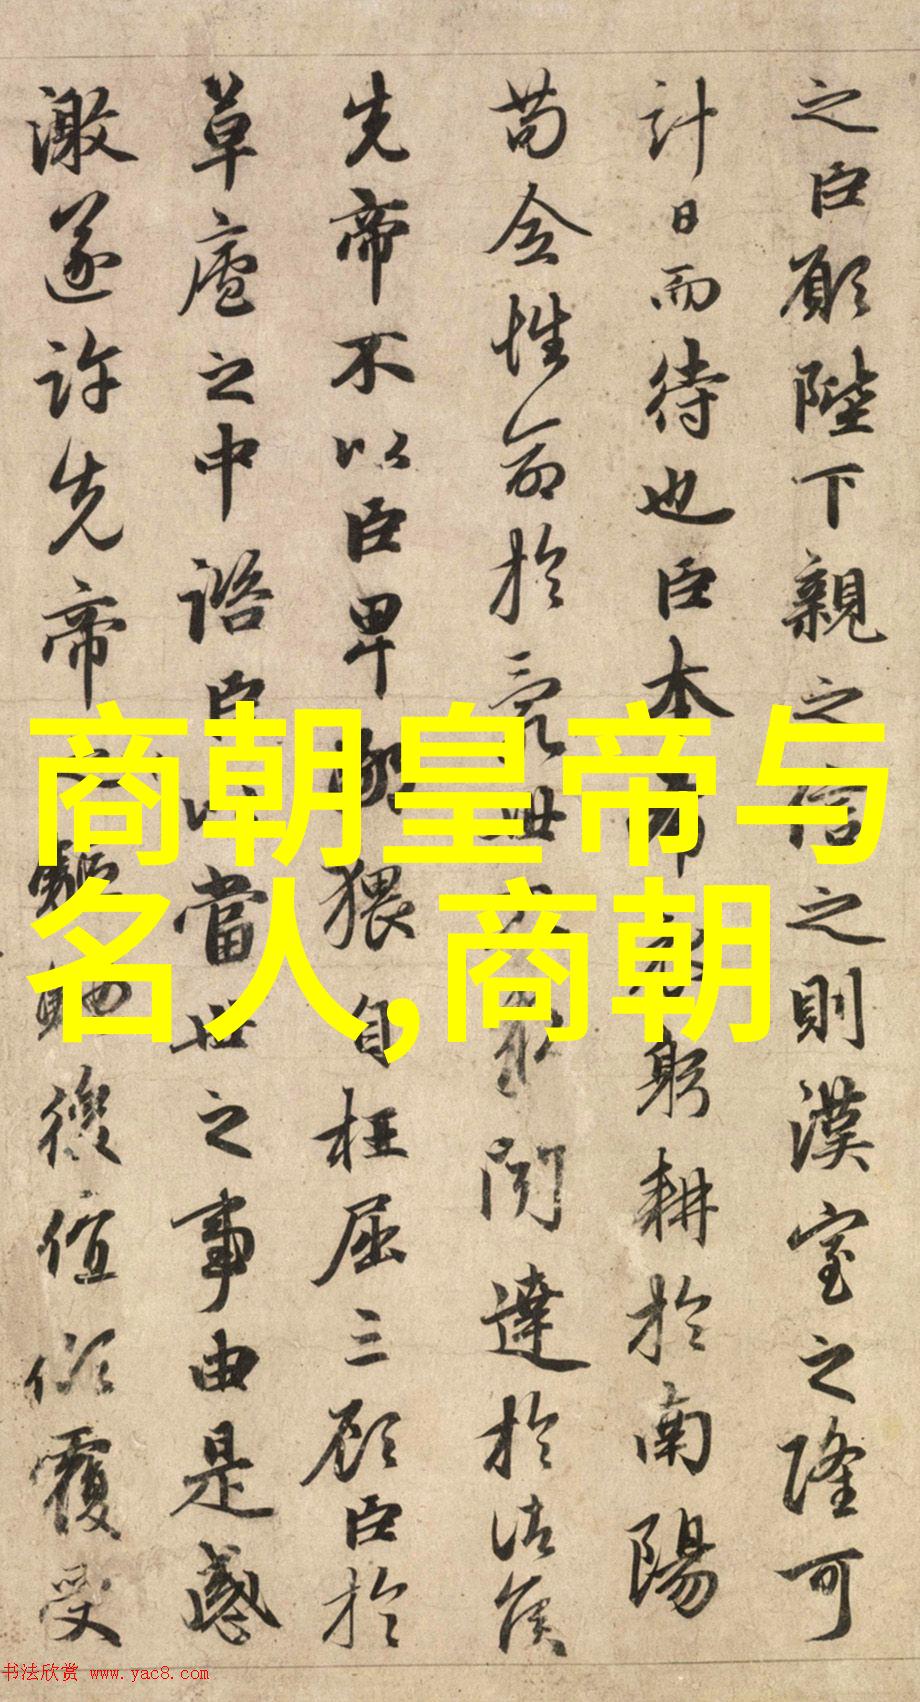 之臣願陛下親之信之則漢室之隆可
計日而待也臣本布衣躬耕於南陽
苟全性命於亂世不求聞達於諸侯
先帝不以臣卑鄙猥自枉屈三顧臣於
草廬之中諮臣以當世之事由是感
激遂許先帝以驅馳後值傾覆受
商朝皇帝与
名人,商朝
书法欣赏 www.yac8.com